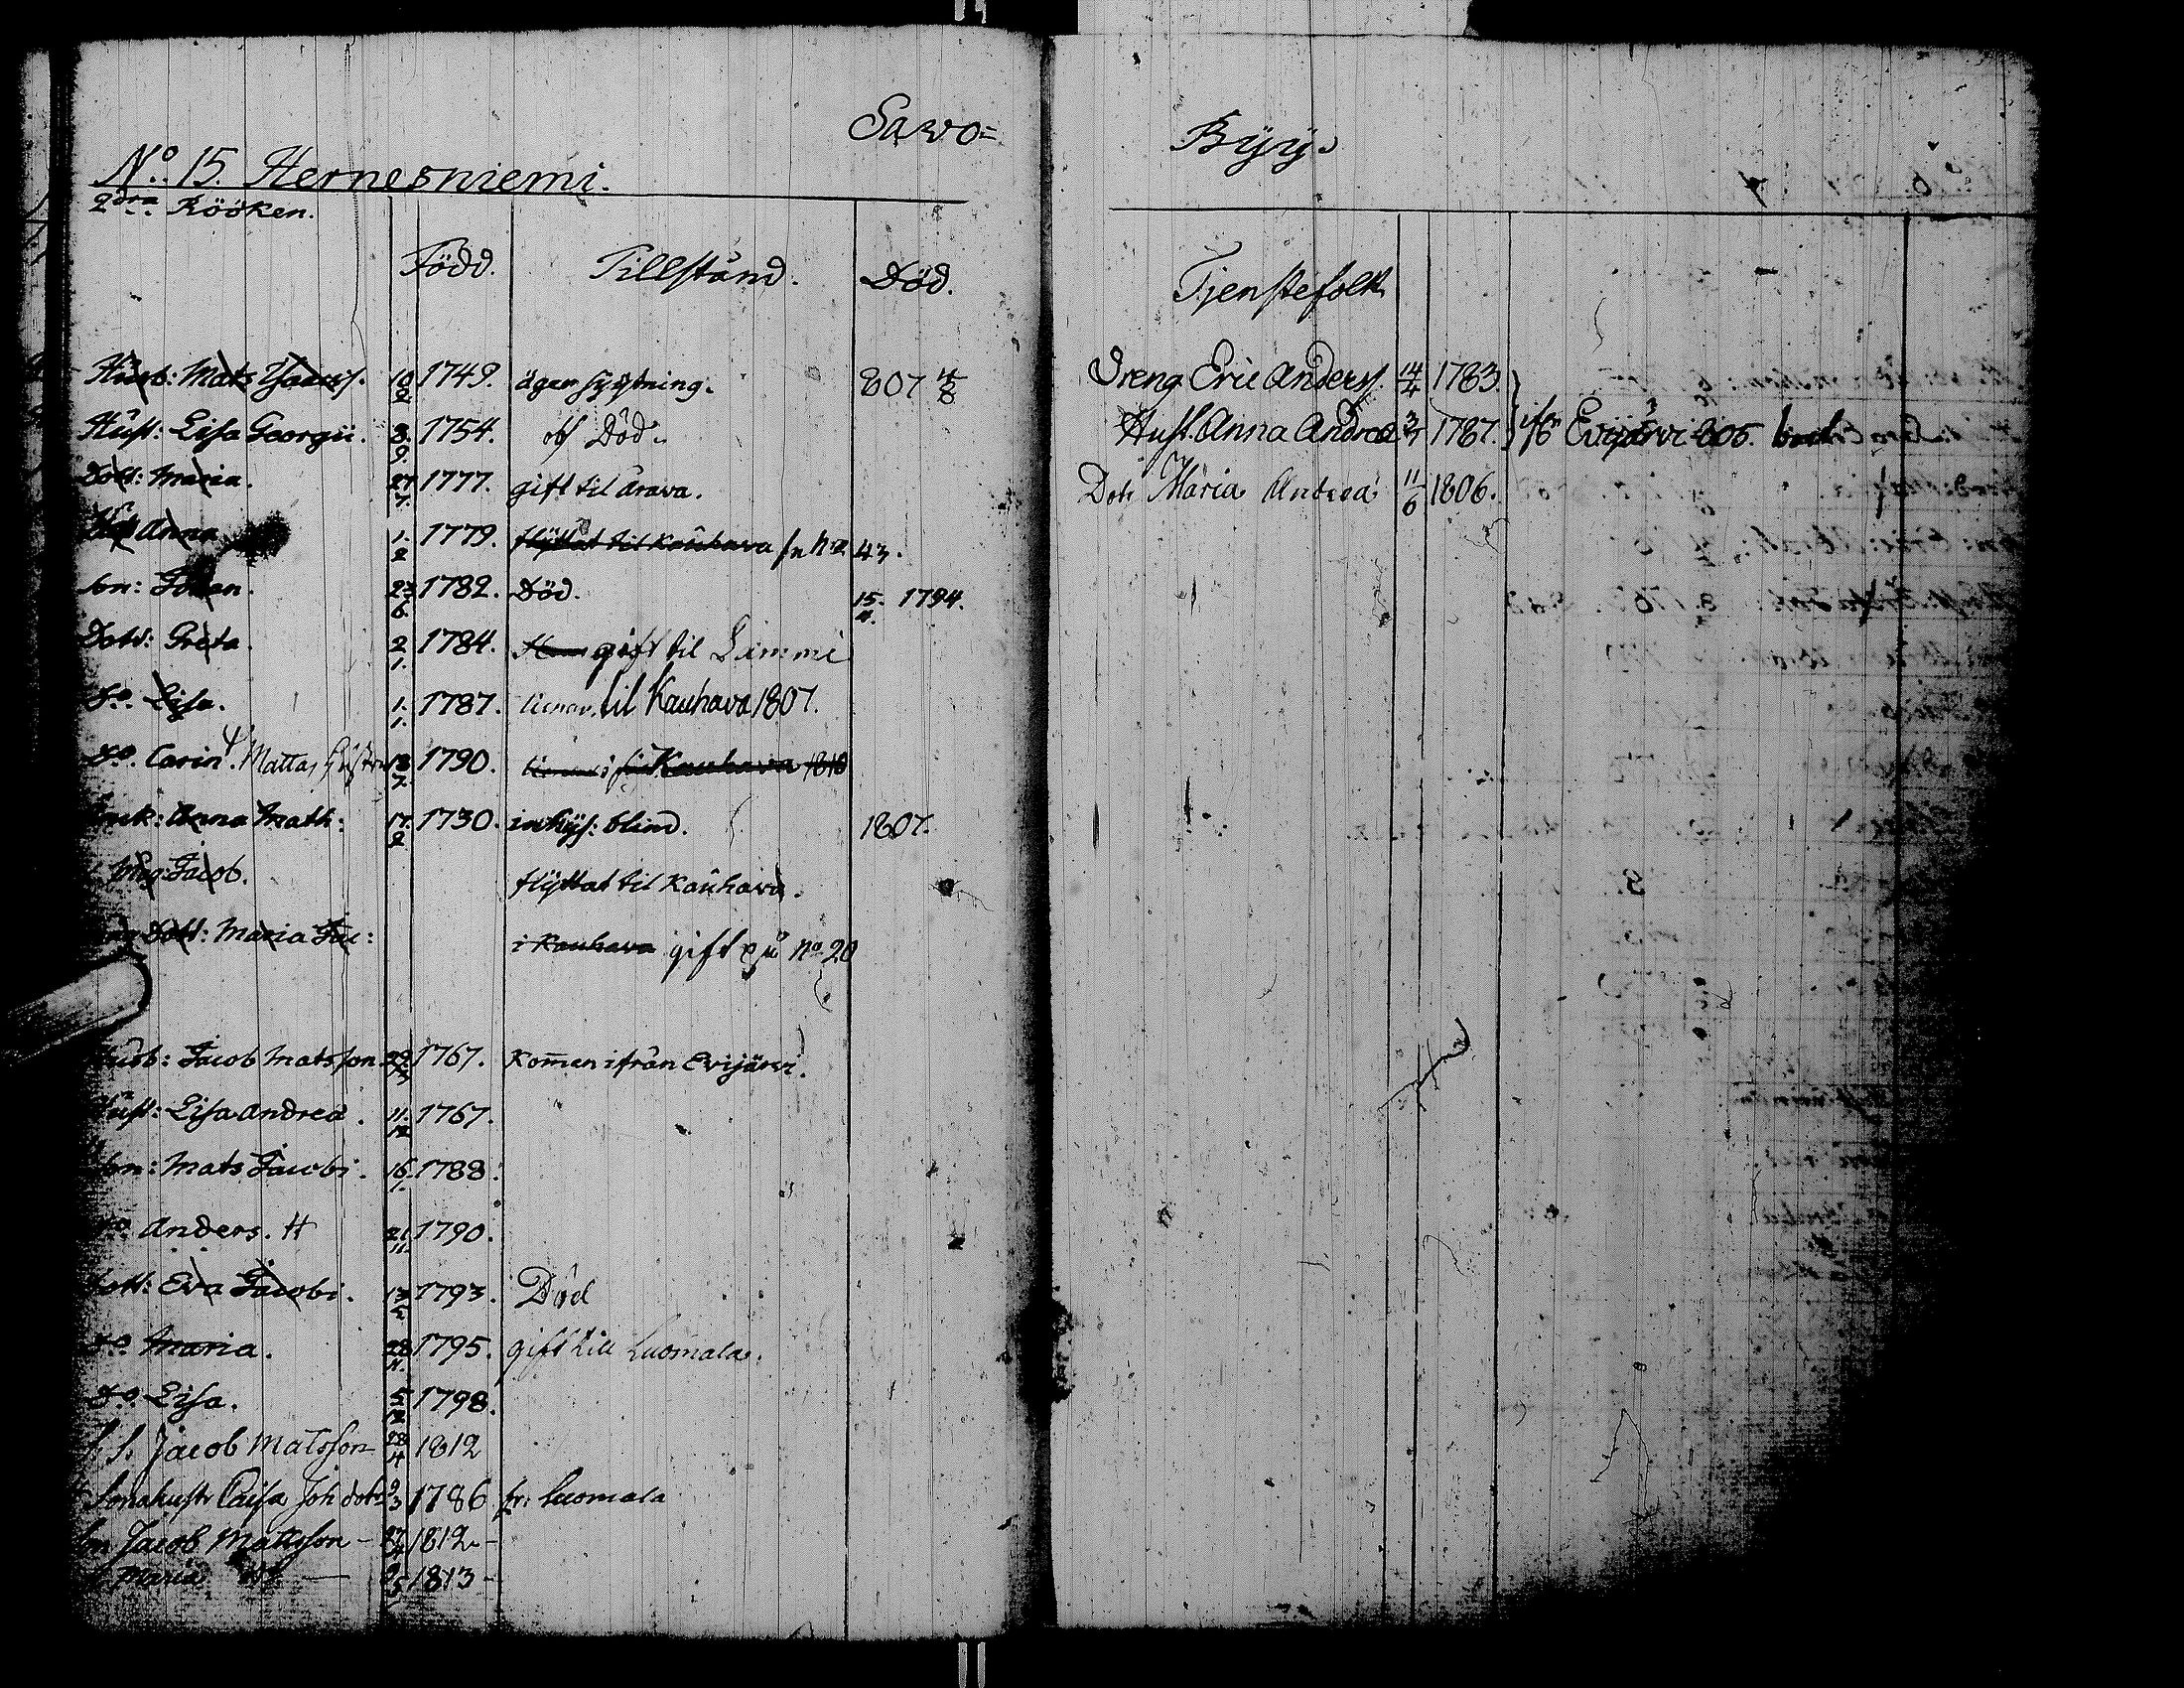 Savo=
No. 15. Hernesniemi.
2dra Rööken.
Född. Tillstånd. Död.
Husb: Mats 10/2 1749. äger sytning. 807 4/8
Hust: Lisa Georgii. 8./9. 1754. Död.
Dott: Maria. 27/7. 1777. gift til Arava.
Anna 1./2 1779. flyttat til Kauhava No 2 43.
Son: Johan. 23/6. 1782. Död. 15. 1794.
Dott: Greta. 2/1. 1784. gift til Lammi
Do. Lisa. 1./1. 1787. til Kauhava 1807.
Do. Carin. Mattas Hustru 18/7. 1790. Kauhava 1810
Anna Math: 17./2 1730. inhys: blind. 1807.
Jacob. flyttat til Kauhava.
Dott: Maria Jac: i Kauhava gift på No 20
Husb: Jacob Matsson 1767. Kommen ifrån Evijärvi.
Hust: Lisa Andreæ. 11./12 1767.
Son: Mats Jacobi. 16./1. 1788.
Do Anders. H 21/11. 1790.
Dott: Eva Jacobi. 13/5 1793. Död
Do. Maria. 28/11. 1795. gift till Luomala.
Do. Lisa. 5/12 1798.
S. S. Jacob Matsson 28/4 1812
Sonahustr Caisa Joh dotr 9/3 1786 fr: Luomala
Son Jacob Mattsson - 27/4 1812 -
Maria 1813 -
Byy.
Tjenstefolk
Dreng Eric Anders. 14/4 1783.
Hust. Anna Andreæ 3/7 1787. Evijärvi 805.
Dotr Maria Andreæ 11/6 1806.